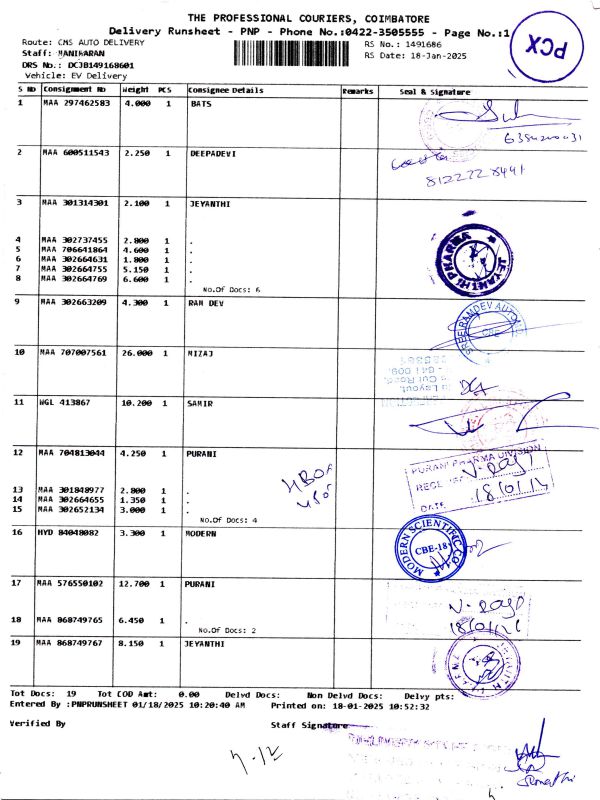 THE PROFESSIONAL COURIERS, COIMBATORE
Delivery Runsheet - PNP - Phone No.:0422-3505555 - Page No.:1
PCX
Route: CMS AUTO DELIVERY
Staff: MANIKARAN
DRS No.: DCJB149168601
Vehicle: EV Delivery
RS No.: 1491686
RS Date: 18-Jan-2025
S No Consignment No Weight PCS Consignee Details Remarks Seal & Signature
1 MAA 297462583 4.000 1 BATS
2 MAA 600511543 2.250 1 DEEPADEVI
8122228441
3 MAA 301314301 2.100 1 JEYANTHI
4 MAA 302737455 2.800 1 .
5 MAA 706641864 4.600 1 .
6 MAA 302664631 1.800 1 .
7 MAA 302664755 5.150 1 .
8 MAA 302664769 6.600 1 .
No.Of Docs: 6
JEYANTHI PHARMA
9 MAA 302663209 4.300 1 RAM DEV
SREE RAMDEV AUTO
CBE
10 MAA 707007561 26.000 1 MIZAJ
11 NGL 413867 10.200 1 SAMIR
12 MAA 704813044 4.250 1 PURANI
13 MAA 301848977 2.800 1 .
14 MAA 302664655 1.350 1 .
15 MAA 302652134 3.000 1 .
No.Of Docs: 4
PURANI PHARMA DIVISION
DATE
16 HYD 84048082 3.300 1 MODERN
MODERN SCIENTIFIC CO.
CBE-18
17 MAA 576550102 12.700 1 PURANI
18 MAA 868749765 6.450 1 .
No.Of Docs: 2
19 MAA 868749767 8.150 1 JEYANTHI
Tot Docs: 19 Tot COD Amt: 0.00 Delvd Docs: Non Delvd Docs: Delvy pts:
Entered By :PNPRUNSHEET 01/18/2025 10:20:40 AM Printed on: 18-01-2025 10:52:32
Verified By Staff Signature